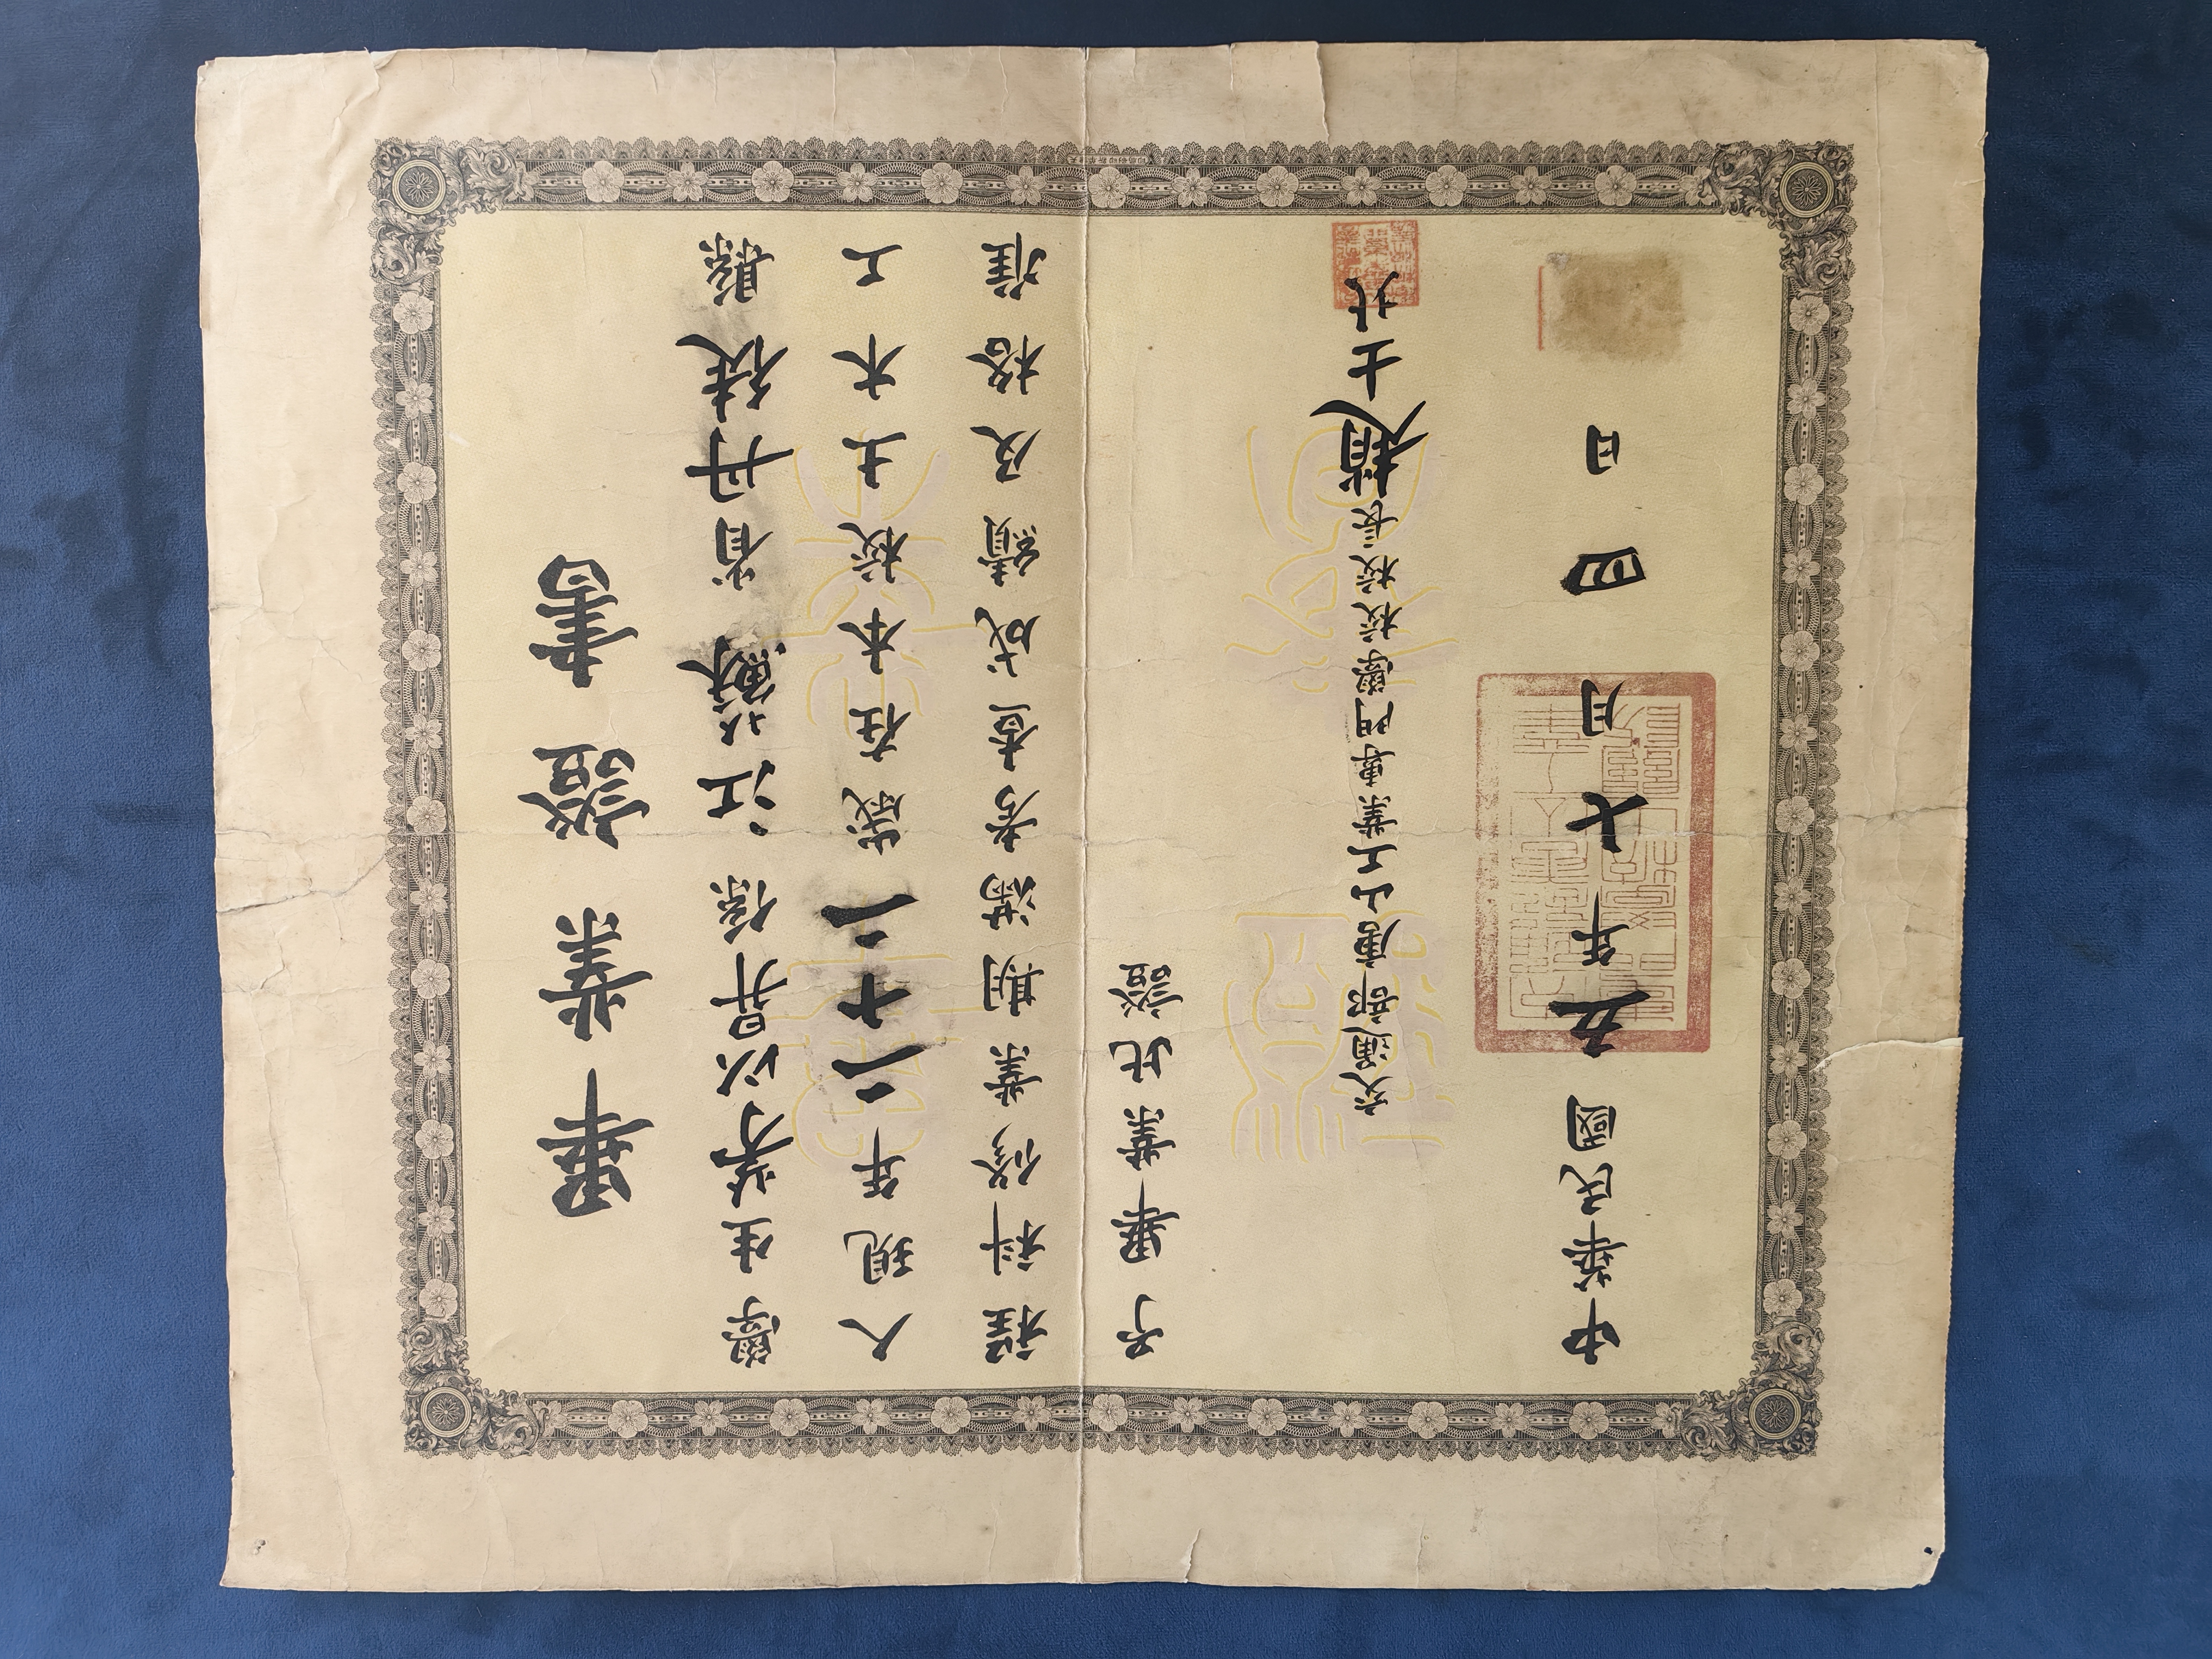 畢業證書
學生茅以昇係江蘇省丹徒縣
人現年二十二歲在本校土木工
程科修業期滿考查成績及格准
予畢業此證
交通部唐山工業專門學校校長趙士北
中華民國五年七月四日